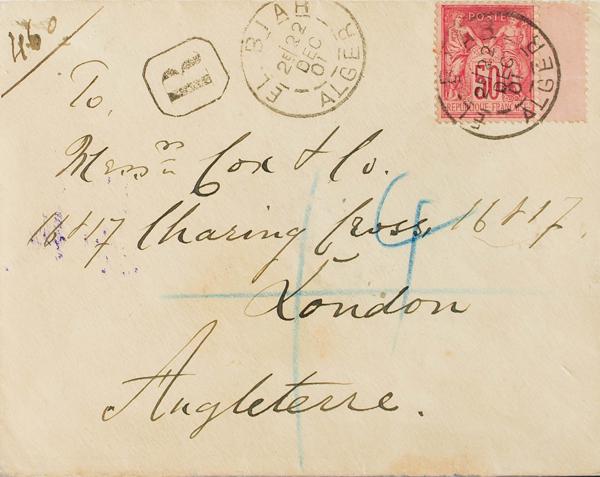 460
R
EL-BIAR
2E
22
DEC
01
ALGER
POSTE
50
REPUBLIQUE FRANCAISE
22
DEC
01
ALGER
To,
Messrs Cox & Co.
16 & 17 Charing Cross, 16 & 17.
4
London
Angleterre.